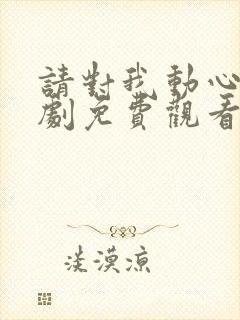 請對我動心
劇免費觀看
淡漠涼